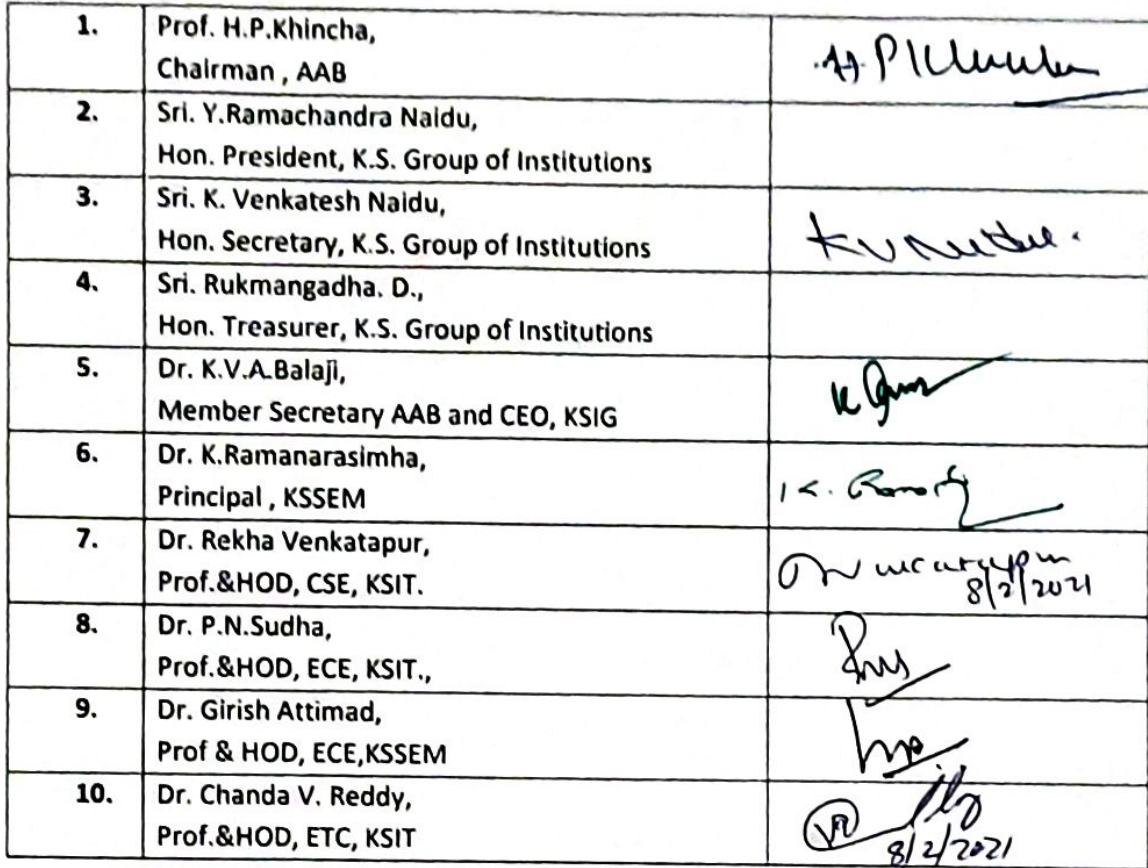 1. Prof. H.P.Khincha,
Chairman , AAB
2. Sri. Y.Ramachandra Naidu,
Hon. President, K.S. Group of Institutions
3. Sri. K. Venkatesh Naidu,
Hon. Secretary, K.S. Group of Institutions
4. Sri. Rukmangadha. D.,
Hon. Treasurer, K.S. Group of Institutions
5. Dr. K.V.A.Balaji,
Member Secretary AAB and CEO, KSIG
6. Dr. K.Ramanarasimha,
Principal , KSSEM
7. Dr. Rekha Venkatapur,
Prof.&HOD, CSE, KSIT.
8/2/2021
8. Dr. P.N.Sudha,
Prof.&HOD, ECE, KSIT.,
9. Dr. Girish Attimad,
Prof & HOD, ECE,KSSEM
10. Dr. Chanda V. Reddy,
Prof.&HOD, ETC, KSIT
8/2/2021